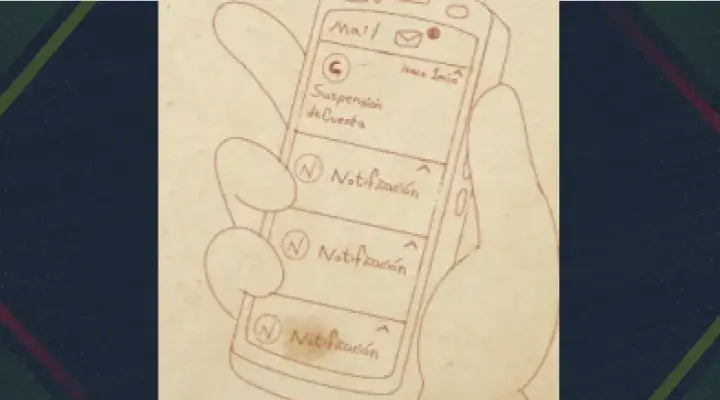 Mail
G
Hace 1min
Suspensión
de Cuenta
N Notificación
N Notificación
N Notificación